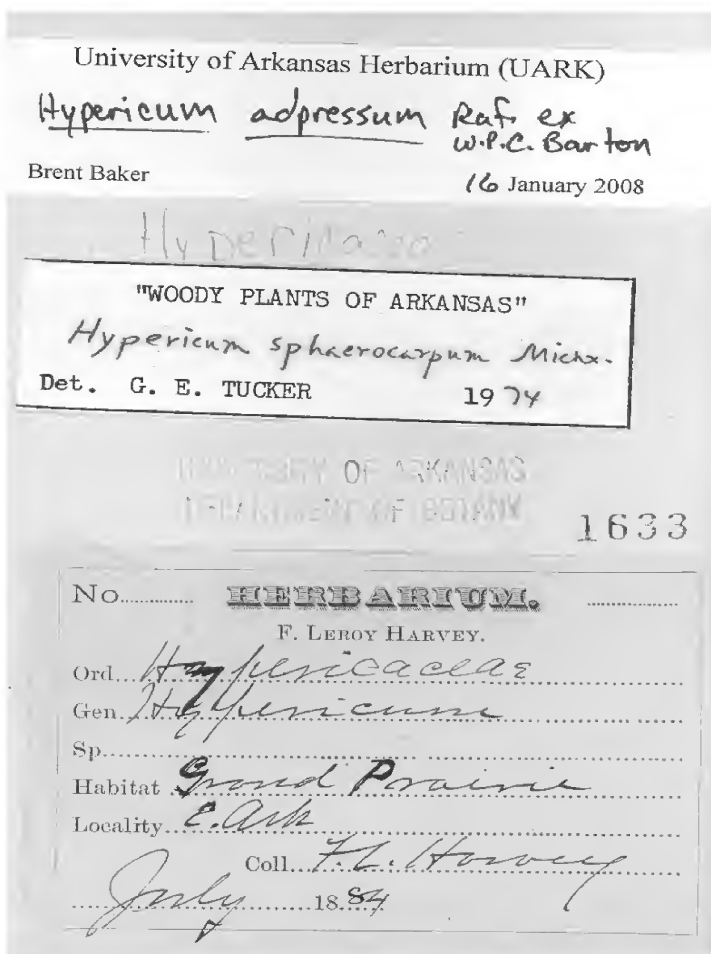 University of Arkansas Herbarium (UARK)
Hypericum adpressum Raf. ex
W.P.C. Barton
Brent Baker 16 January 2008
Hypericaceae
"WOODY PLANTS OF ARKANSAS"
Hypericum sphaerocarpum Michx.
Det. G. E. TUCKER 1974
UNIVERSITY OF ARKANSAS
DEPARTMENT OF BOTANY
1633
No. HERBARIUM.
F. LEROY HARVEY.
Ord. Hypericaceae
Gen. Hypericum
Sp.
Habitat Grand Prairie
Locality E. Ark
Coll. F. L. Harvey
July 1884